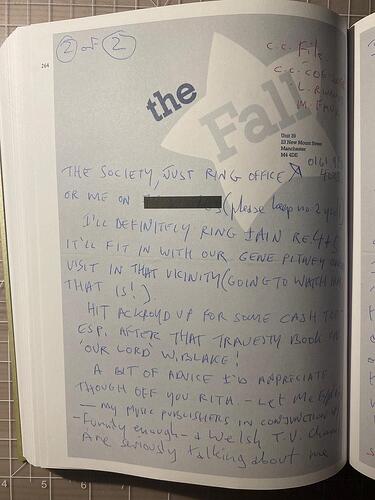 2 of 2
c.c. File
c.c.
L.
M.
264
the Fall
Unit 29
23 New Mount Street
Manchester
M4 4DE
0161
THE SOCIETY, JUST RING OFFICE
OR ME ON (please keep no. 2 you)
I'LL DEFINITELY RING IAIN RE. 4
IT'LL FIT IN WITH OUR GENE PITNEY
VISIT IN THAT VICINITY (GOING TO WATCH HIM
THAT IS!).
HIT ACKROYD UP FOR SOME CASH TOO
ESP. AFTER THAT TRAVESTY BOOK ON
'OUR LORD' W. BLAKE!
A BIT OF ADVICE I'D APPRECIATE
THOUGH OFF YOU RITA. - Let Me
- MY MUSIC PUBLISHERS IN CONJUNCTION W/
- Funnily enough - a Welsh T.V.
Are seriously talking about me